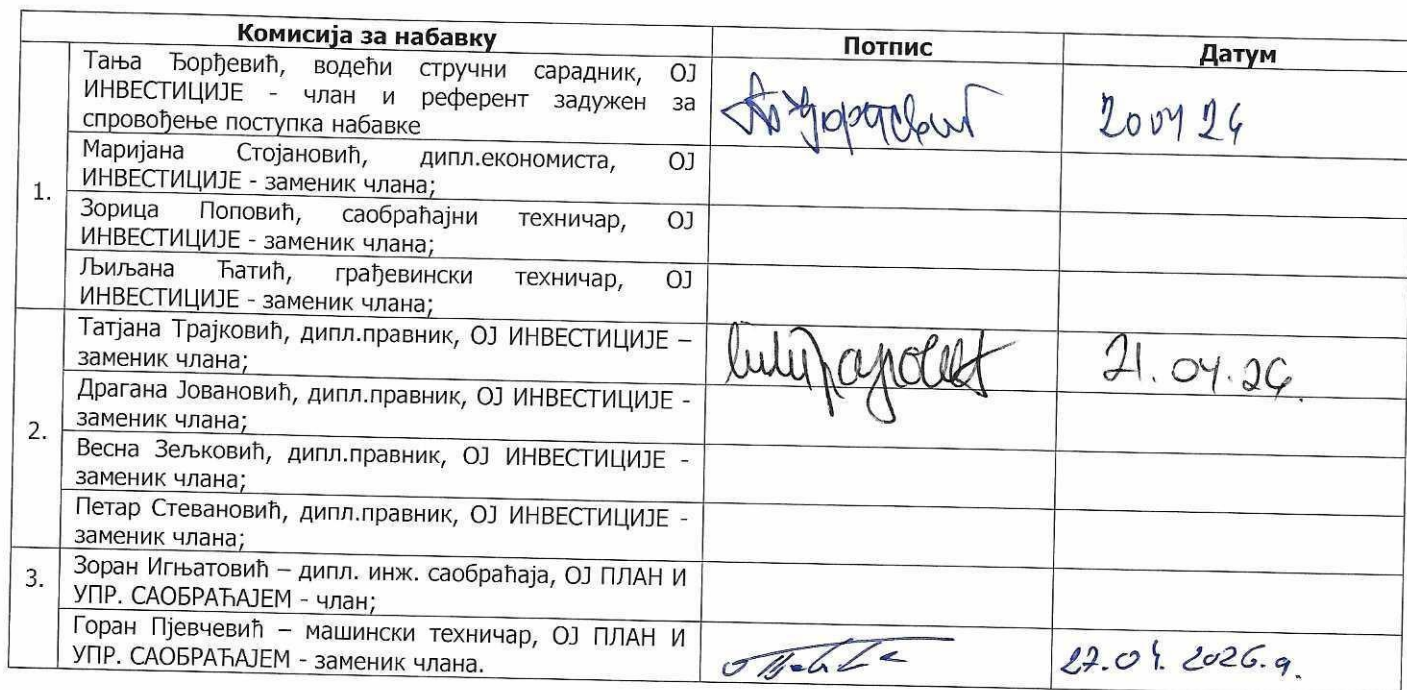 Комисија за набавку Потпис Датум
1.
Тања Ђорђевић, водећи стручни сарадник, ОЈ
ИНВЕСТИЦИЈЕ - члан и референт задужен за
спровођење поступка набавке
Маријана Стојановић, дипл.економиста, ОЈ
ИНВЕСТИЦИЈЕ - заменик члана;
Зорица Поповић, саобраћајни техничар, ОЈ
ИНВЕСТИЦИЈЕ - заменик члана;
Љиљана Ћатић, грађевински техничар, ОЈ
ИНВЕСТИЦИЈЕ - заменик члана;
2.
Татјана Трајковић, дипл.правник, ОЈ ИНВЕСТИЦИЈЕ –
заменик члана;
21.04.26.
Драгана Јовановић, дипл.правник, ОЈ ИНВЕСТИЦИЈЕ -
заменик члана;
Весна Зељковић, дипл.правник, ОЈ ИНВЕСТИЦИЈЕ -
заменик члана;
Петар Стевановић, дипл.правник, ОЈ ИНВЕСТИЦИЈЕ -
заменик члана;
3.
Зоран Игњатовић – дипл. инж. саобраћаја, ОЈ ПЛАН И
УПР. САОБРАЋАЈЕМ - члан;
Горан Пјевчевић – машински техничар, ОЈ ПЛАН И
УПР. САОБРАЋАЈЕМ - заменик члана.
27.04.2026.г.